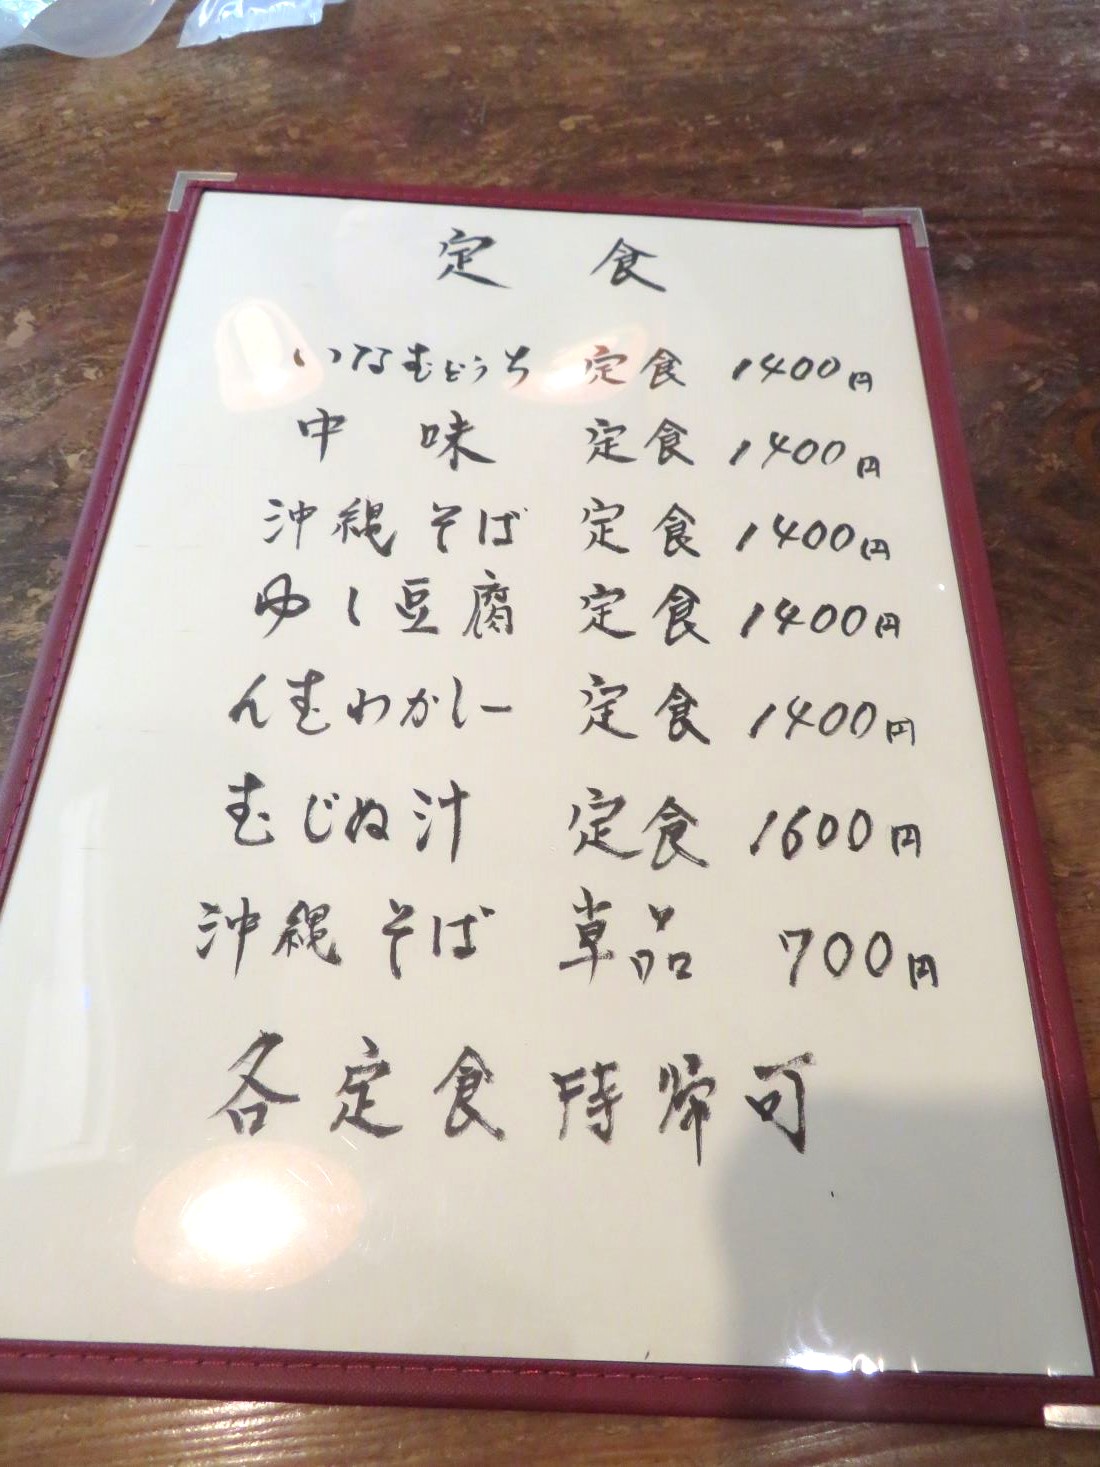 定食
いなむどぅち 定食 1400円
中味 定食 1400円
沖縄そば 定食 1400円
ゆし豆腐 定食 1400円
んむわかしー 定食 1400円
むじぬ汁 定食 1600円
沖縄そば 単品 700円
各定食持帰可